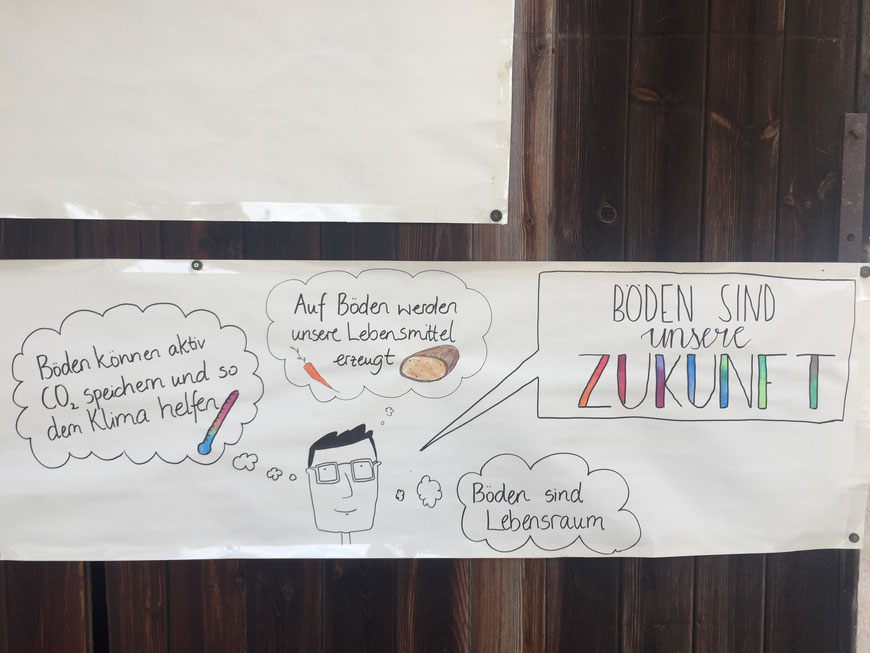 Böden können aktiv
CO₂ speichern und so
dem Klima helfen
Auf Böden werden
unsere Lebensmittel
erzeugt
BÖDEN SIND
unsere
ZUKUNFT
Böden sind
Lebensraum